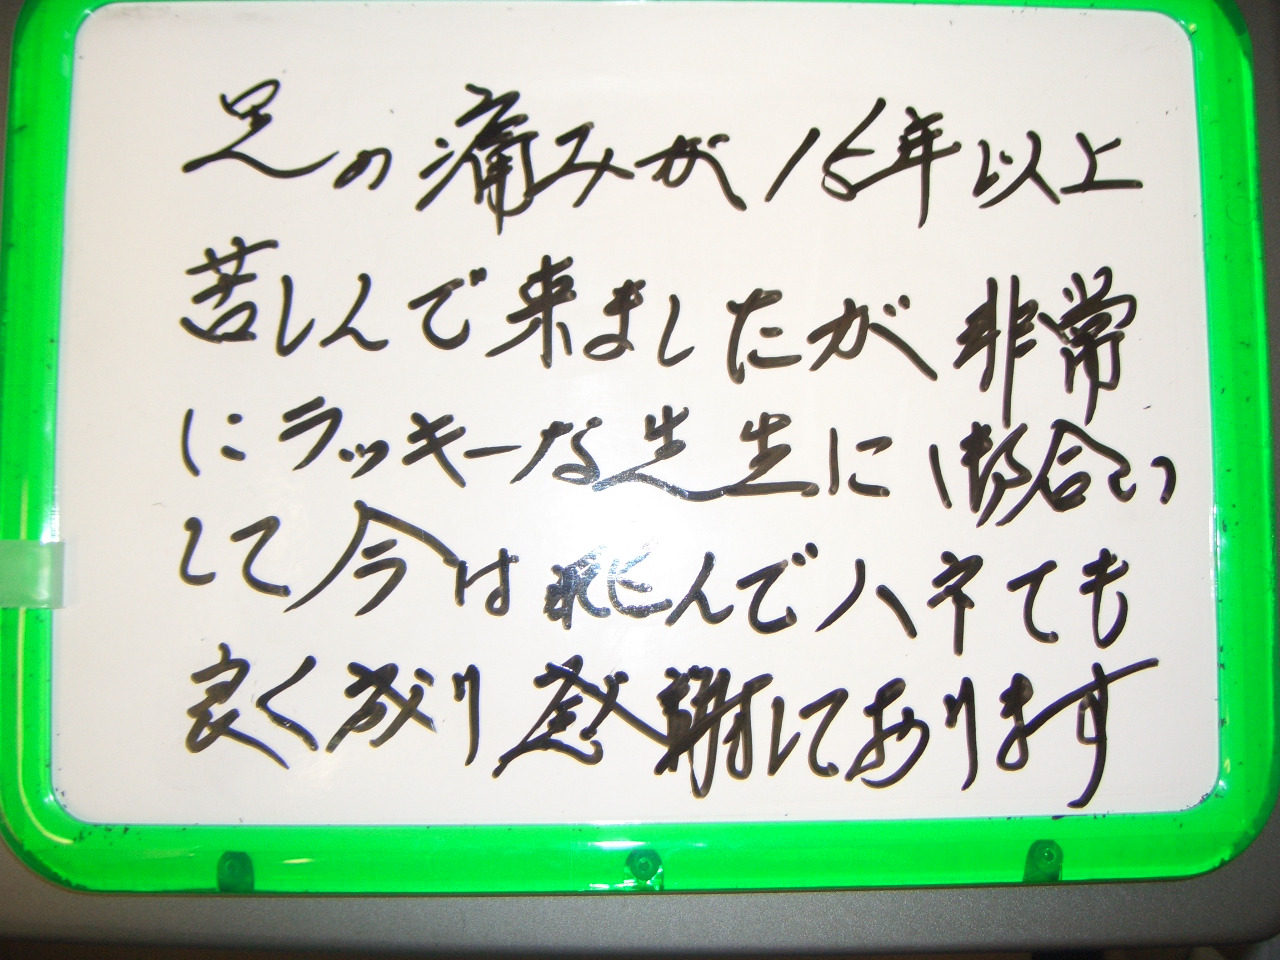 足の痛みが15年以上
苦しんで来ましたが非常
にラッキーな先生に合い
して今は飛んでハネても
良く成り感謝しております